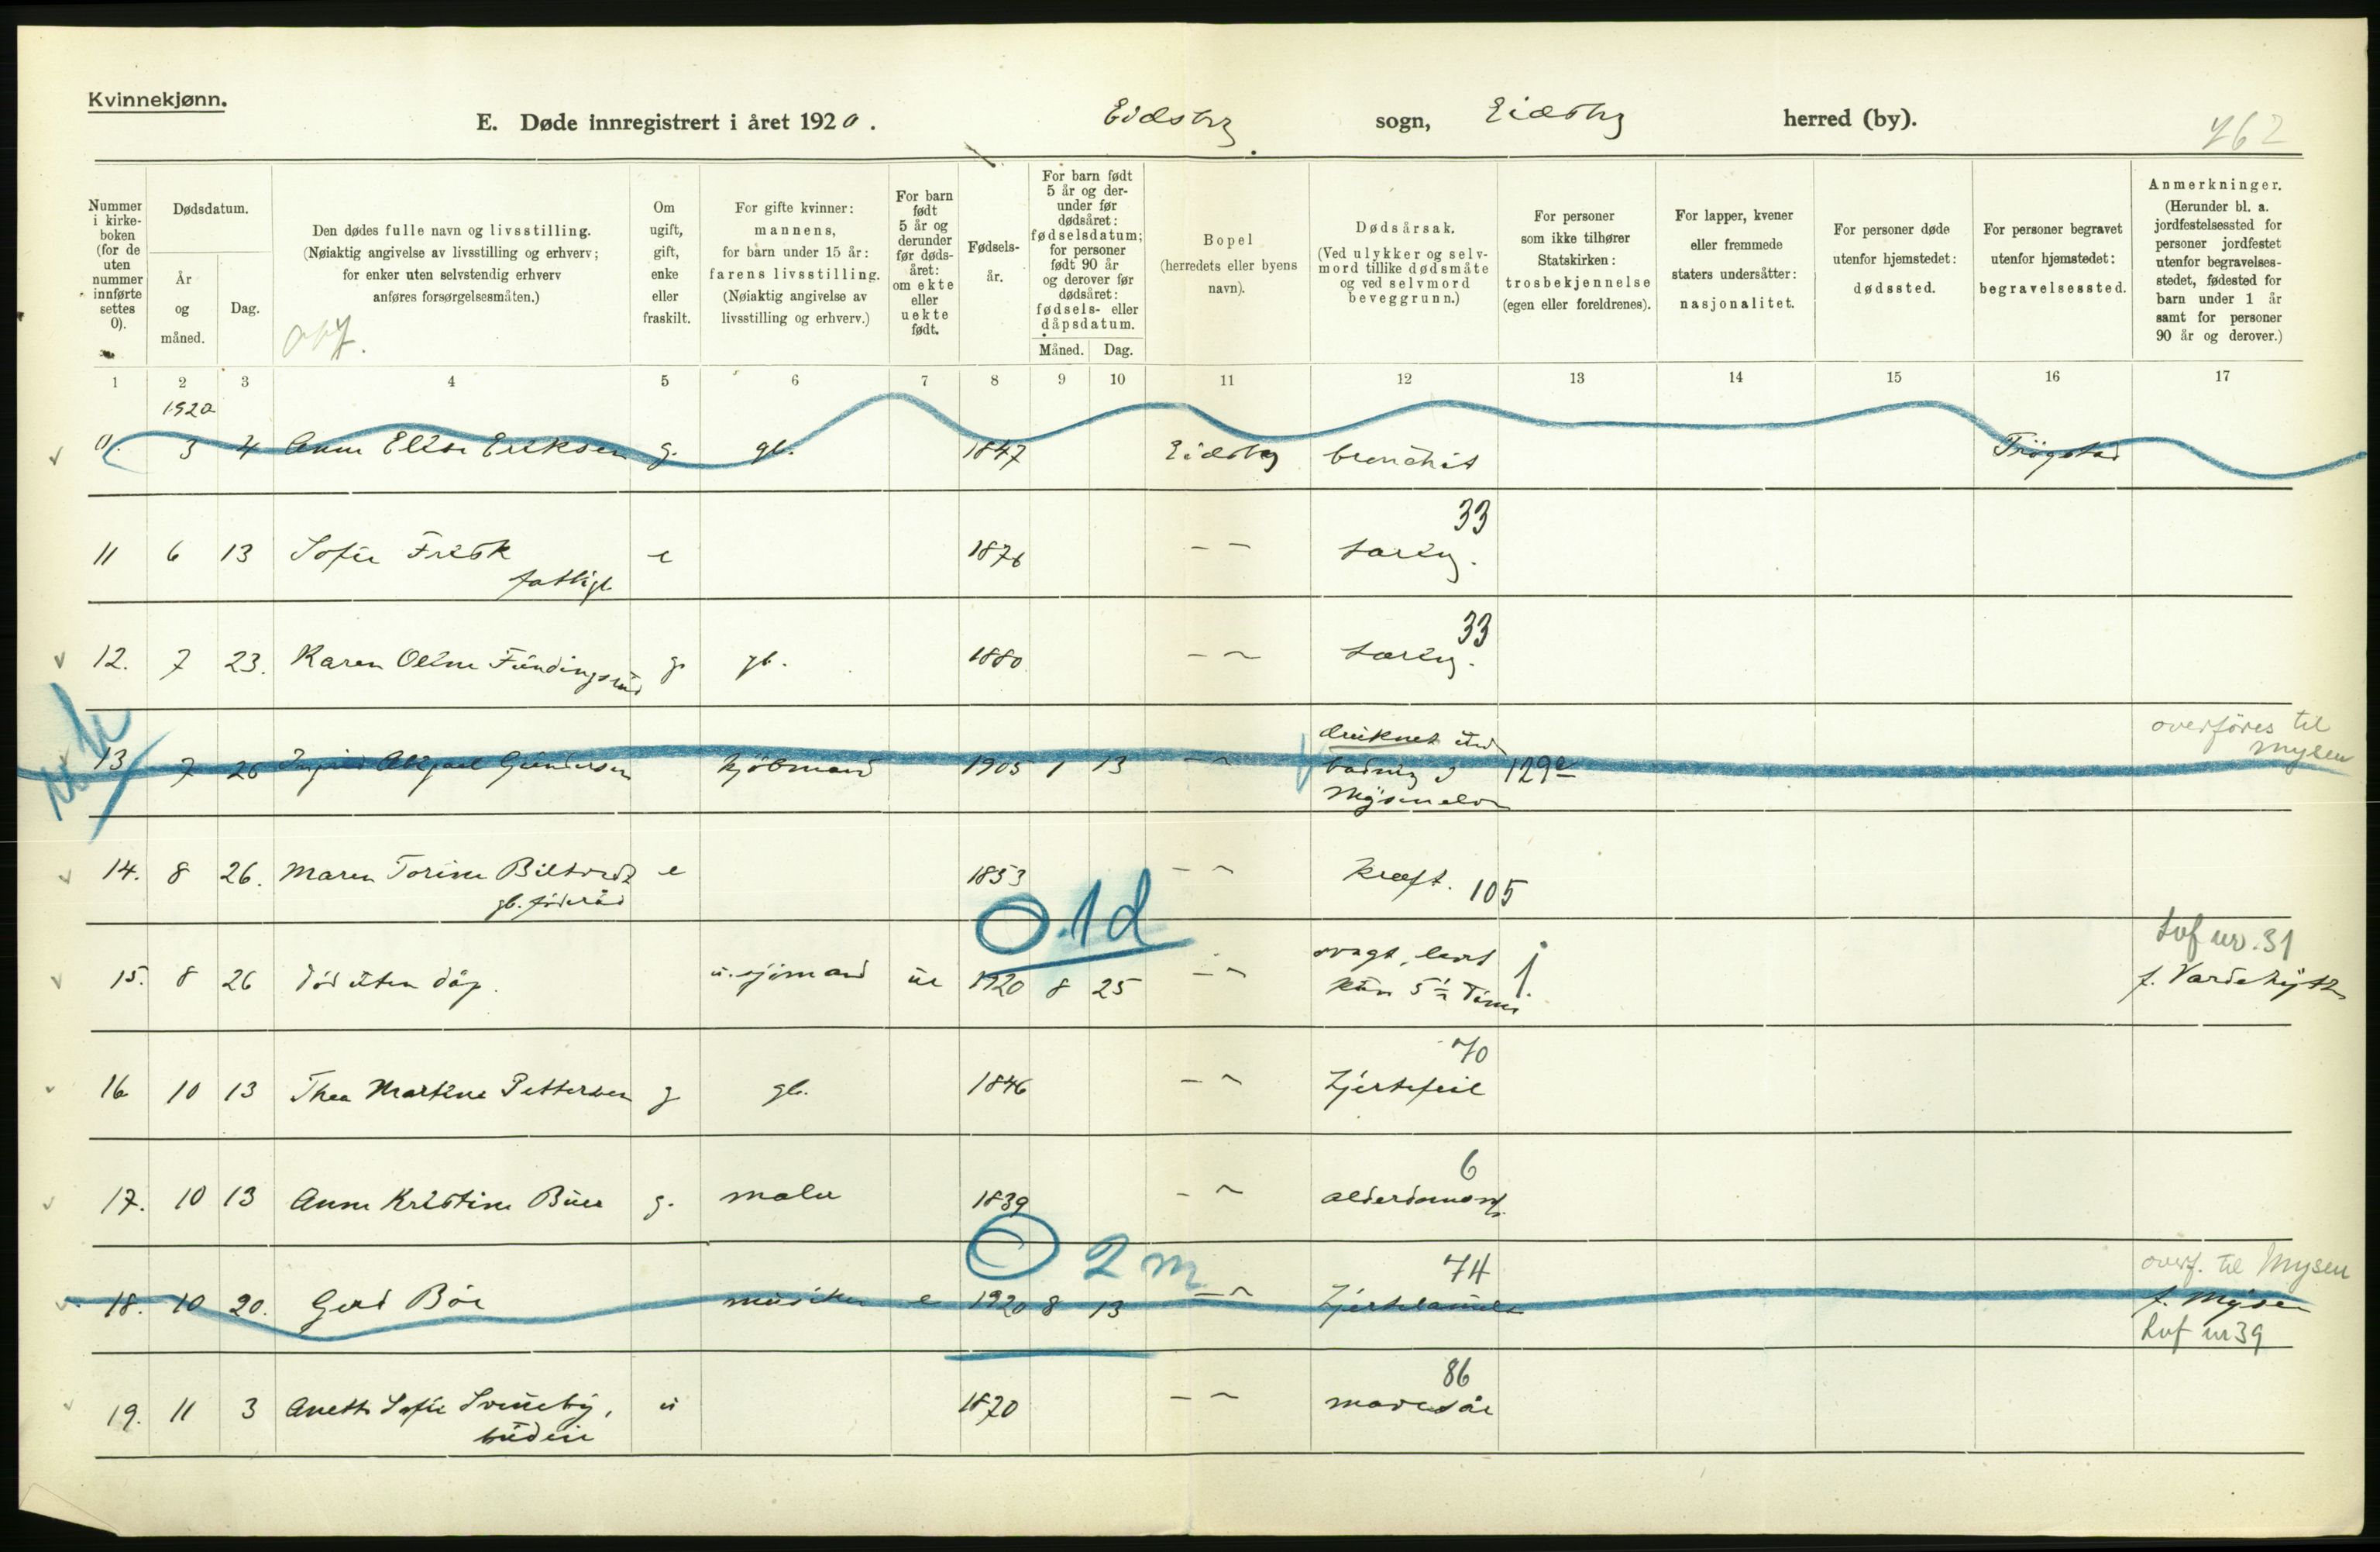 Kvinnekjønn.
E. Døde innregistrert i året 1920. Eidsbg sogn, Eidsbg herred (by).
762
Nummer i kirke-boken (for de uten nummer innførte settes 0).
Dødsdatum.
År og måned.
Dag.
Den dødes fulle navn og livsstilling.
(Nøiaktig angivelse av livsstilling og erhverv; for enker uten selvstendig erhverv anføres forsørgelsesmåten.)
Om ugift, gift, enke eller fraskilt.
For gifte kvinner: mannens, for barn under 15 år: farens livsstilling. (Nøiaktig angivelse av livsstilling og erhverv.)
For barn født 5 år og derunder før døds-året: om ekte eller uekte født.
Fødsels-år.
For barn født 5 år og der-under før dødsåret: fødselsdatum; for personer født 90 år og derover før dødsåret: fødsels- eller dåpsdatum.
Måned. Dag.
Bopel (herredets eller byens navn).
Dødsårsak. (Ved ulykker og selv-mord tillike dødsmåte og ved selvmord beveggrunn.)
For personer som ikke tilhører Statskirken: trosbekjennelse (egen eller foreldrenes).
For lapper, kvener eller fremmede staters undersåtter: nasjonalitet.
For personer døde utenfor hjemstedet: dødssted.
For personer begravet utenfor hjemstedet: begravelsessted.
Anmerkninger. (Herunder bl. a. jordfestelsessted for personer jordfestet utenfor begravelses-stedet, fødested for barn under 1 år samt for personer 90 år og derover.)
1 2 3 4 5 6 7 8 9 10 11 12 13 14 15 16 17
1920
0. 3 4 Anne Elise Eriksen g. gb. 1847 Eidsbg bronchit Trögstad
33
11 6 13 Sofie Frisk e 1876 – – tærng.
fattigl.
33
12. 7 23. Karen Oline Fundingsrud g. gb. 1880 – – tærng.
overføres til Mysen
13 7 26 Ingrid Gundersen kjöbmand 1905 1 13 – – druknet under badning i Mysenelva 129e
14. 8 26. Maren Torine e 1853 – – kræft. 105
gb. föderåd
0. 1d
Lvf nr. 31
15. 8 26 död uten dåp. u. sjömand ue 1920 8 25 – – svagt, levet kun 5½ Time
f. Vardehöjtz
70
16 10 13 Thea Martine Pettersen g gb. 1846 – – hjertefeil
6
17. 10 13 Anne Kristine Buer g. maler 1839 – – alderdomssv.
0 2m
74
overf. til Mysen
18. 10 20. Gerd Böe musiker e 1920 8 13 – – hjertelammelse f. Mysen
Lvf nr 39
86
19. 11 3 Anette Sofie Svineby, u 1870 – – mavesår
budeie